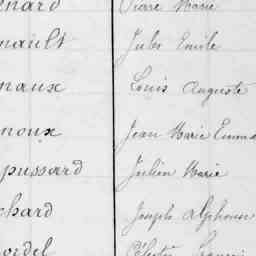 nard Pierre Marie
nault Jules Emile
naux Louis Auguste
noux Jean Marie Emma
pussard Julien Marie
chard Joseph Alphonse
ordel Célestin Franci